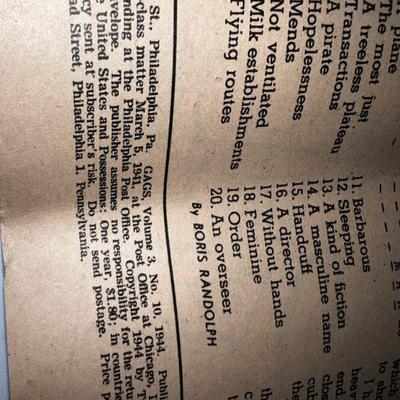 A plane
The most just
A treeless plateau
Transactions
A pirate
Hopelessness
Mends
Not ventilated
Milk establishments
Flying routes
11. Barbarous
12. Sleeping
13. A kind of fiction
14. A masculine name
15. Handcuff
16. A director
17. Without hands
18. Feminine
19. Order
20. An overseer
By BORIS RANDOLPH
which
to sho
I h
heav
end.
clos
cub
the
St. Philadelphia, Pa. GAGS, Volume 3, No. 10, 1944. Publi
class matter March 5, 1941, at the Post Office at Chicago, I
nding at the Philadelphia Post Office. Copyright 1944 by T
velope. The publisher assumes no responsibility for the retu
e United States and Possessions: One year, $1.80; in countrie
cy sent at subscriber's risk. Do not send postage. Price p
ad Street, Philadelphia 1, Pennsylvania.